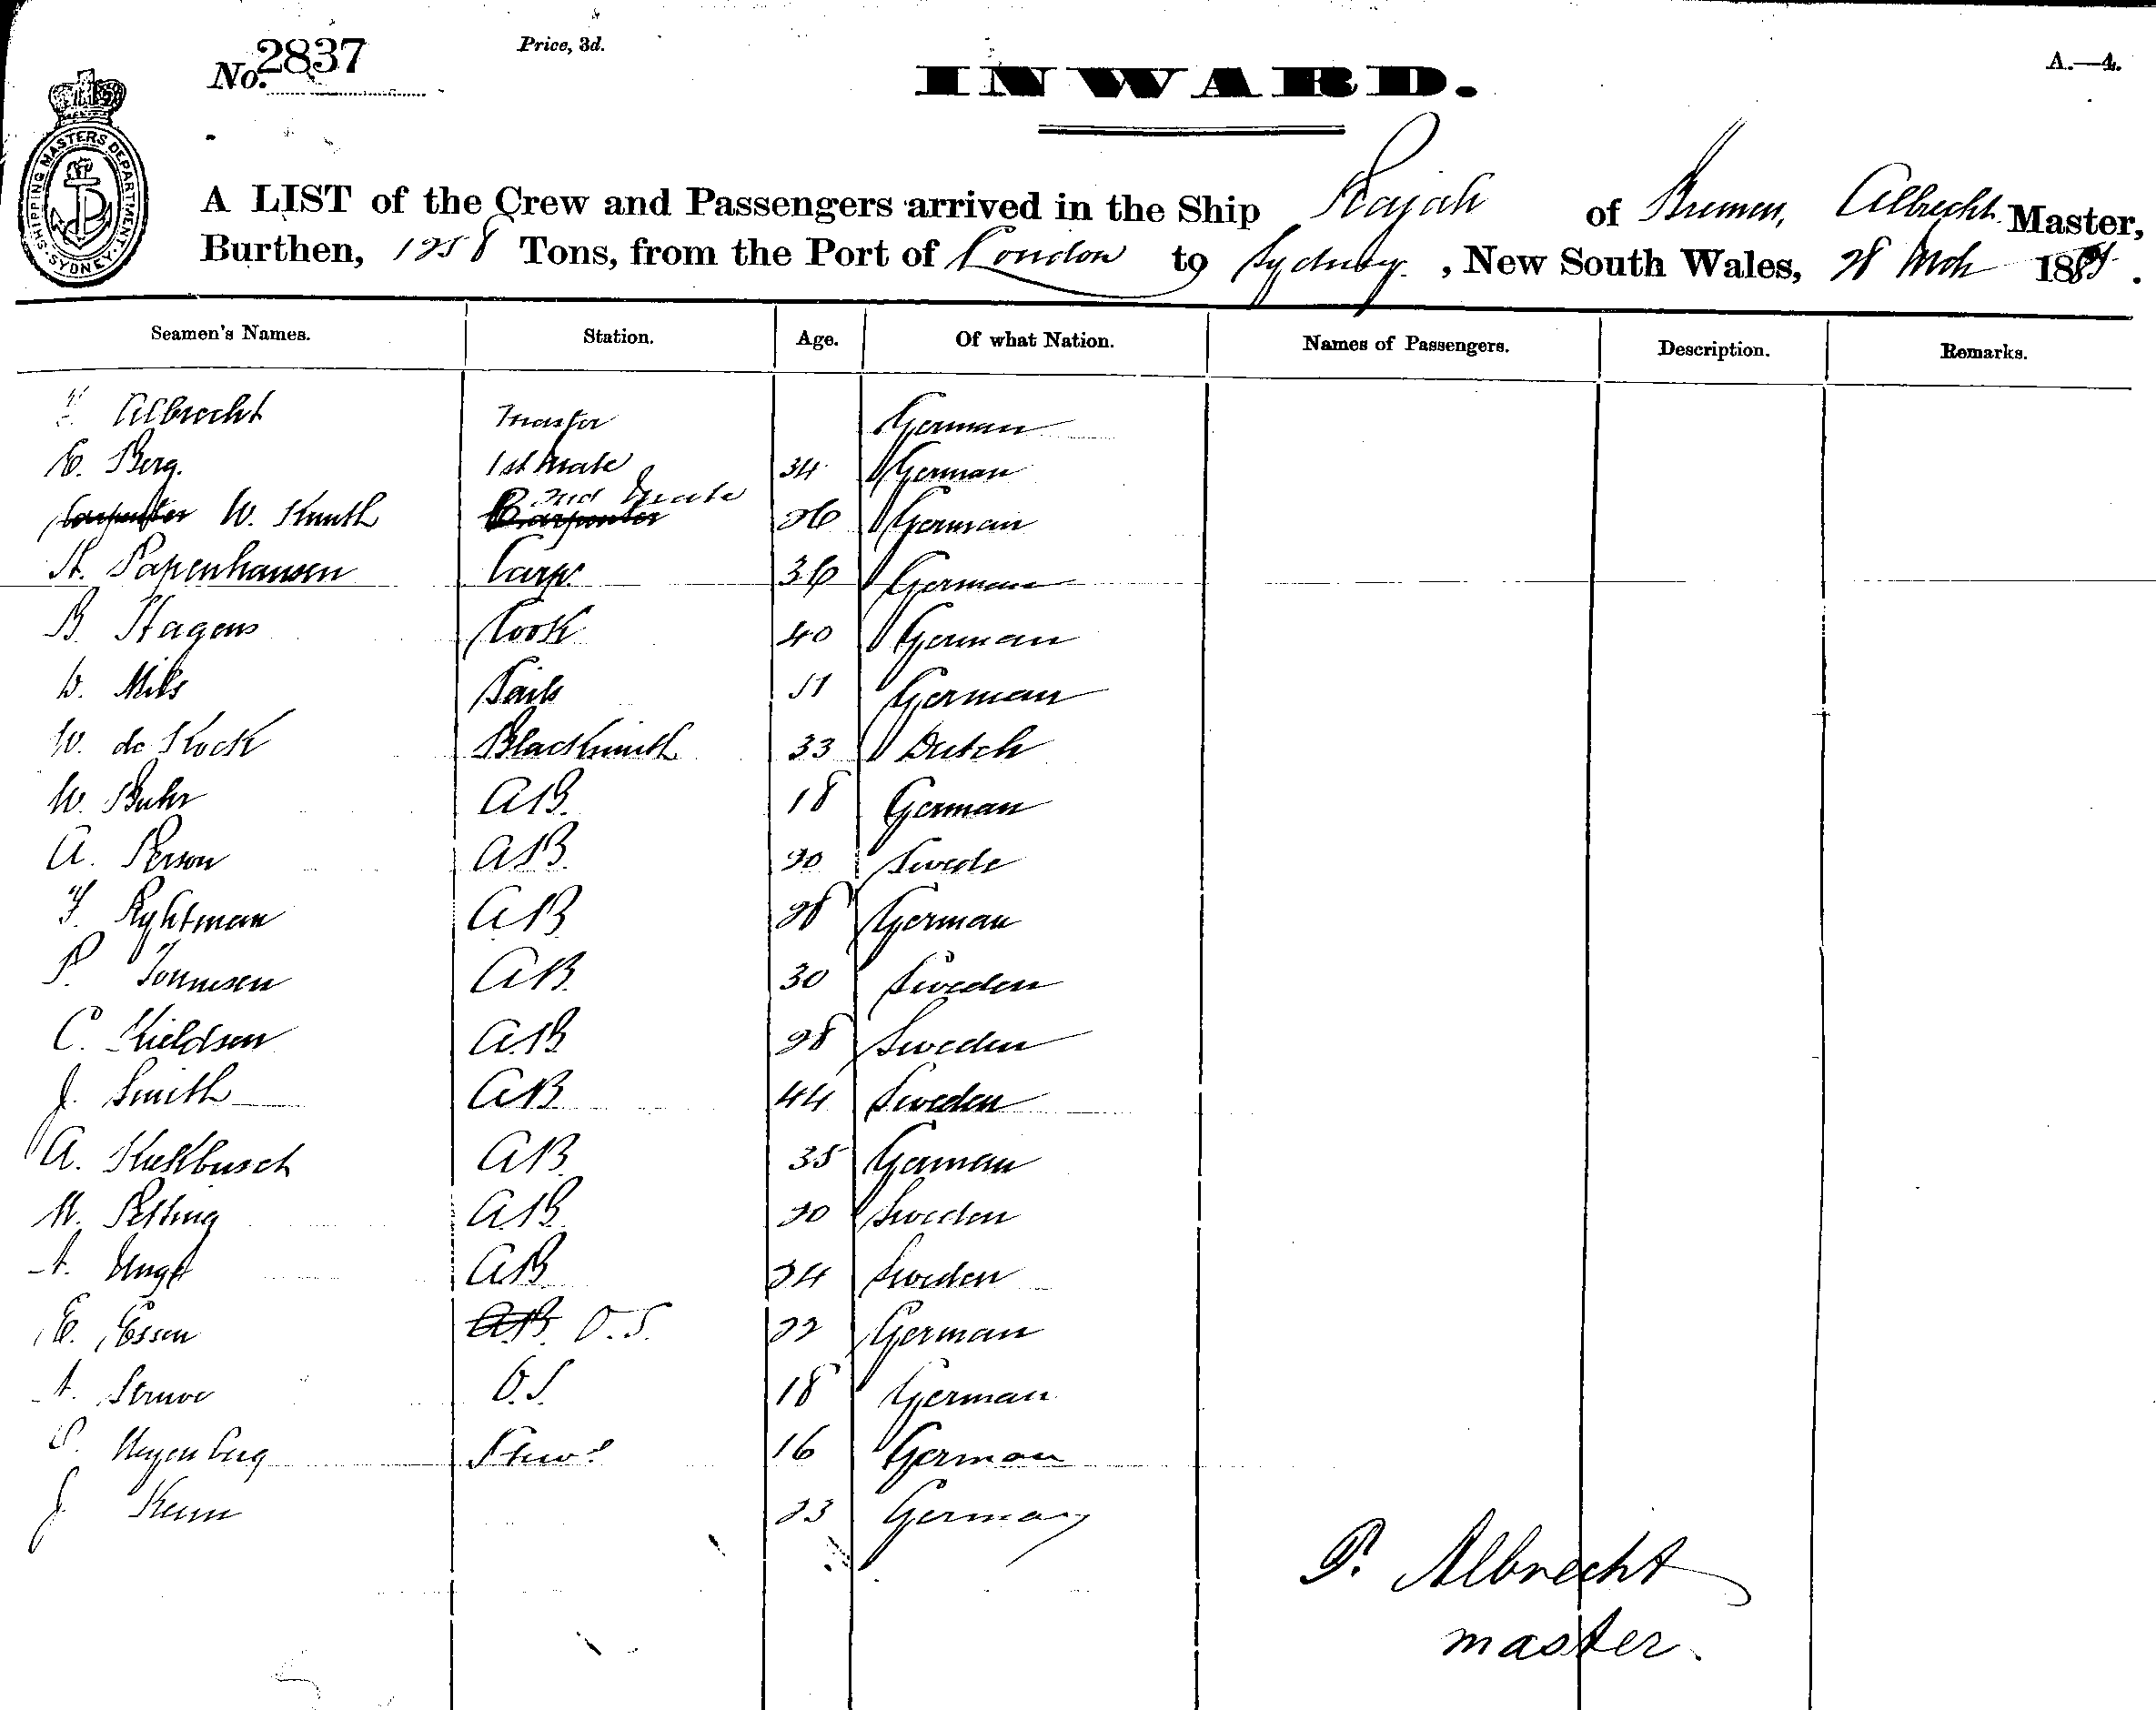 No. 2837
Price, 3d.
INWARD.
A.—4.
SHIPPING MASTERS DEPARTMENT SYDNEY
A LIST of the Crew and Passengers arrived in the Ship Rajah of Bremen, Albrecht Master,
Burthen, 1258 Tons, from the Port of London to Sydney, New South Wales, 28 Mch 188
Seamen's Names. Station. Age. Of what Nation. Names of Passengers. Description. Remarks.
Albrecht Master German
C. Berg. 1st Mate 34 German
2nd Mate
Carpenter W. Knuth Carpenter 26 German
H. Papenhausen Carp. 36 German
B. Hagens Cook 40 German
D. Mils Sails 51 German
W. de Kock Blacksmith 33 Dutch
W. Buhr AB. 18 German
A. Person AB. 20 Swede
F. Ryhtman AB 28 German
P. Tonnesen AB. 30 Sweden
C. Kieldsen AB 28 Sweden
J. Smith AB 44 Sweden
A. Kukbusch AB. 35 German
AB. 20 Sweden
A. AB 24 Sweden
E. Essen AB. O.S. 22 German
A. Struve O.S. 18 German
Heyenberg Stewd 16 German
J. 23 Germany
P. Albrecht
master.